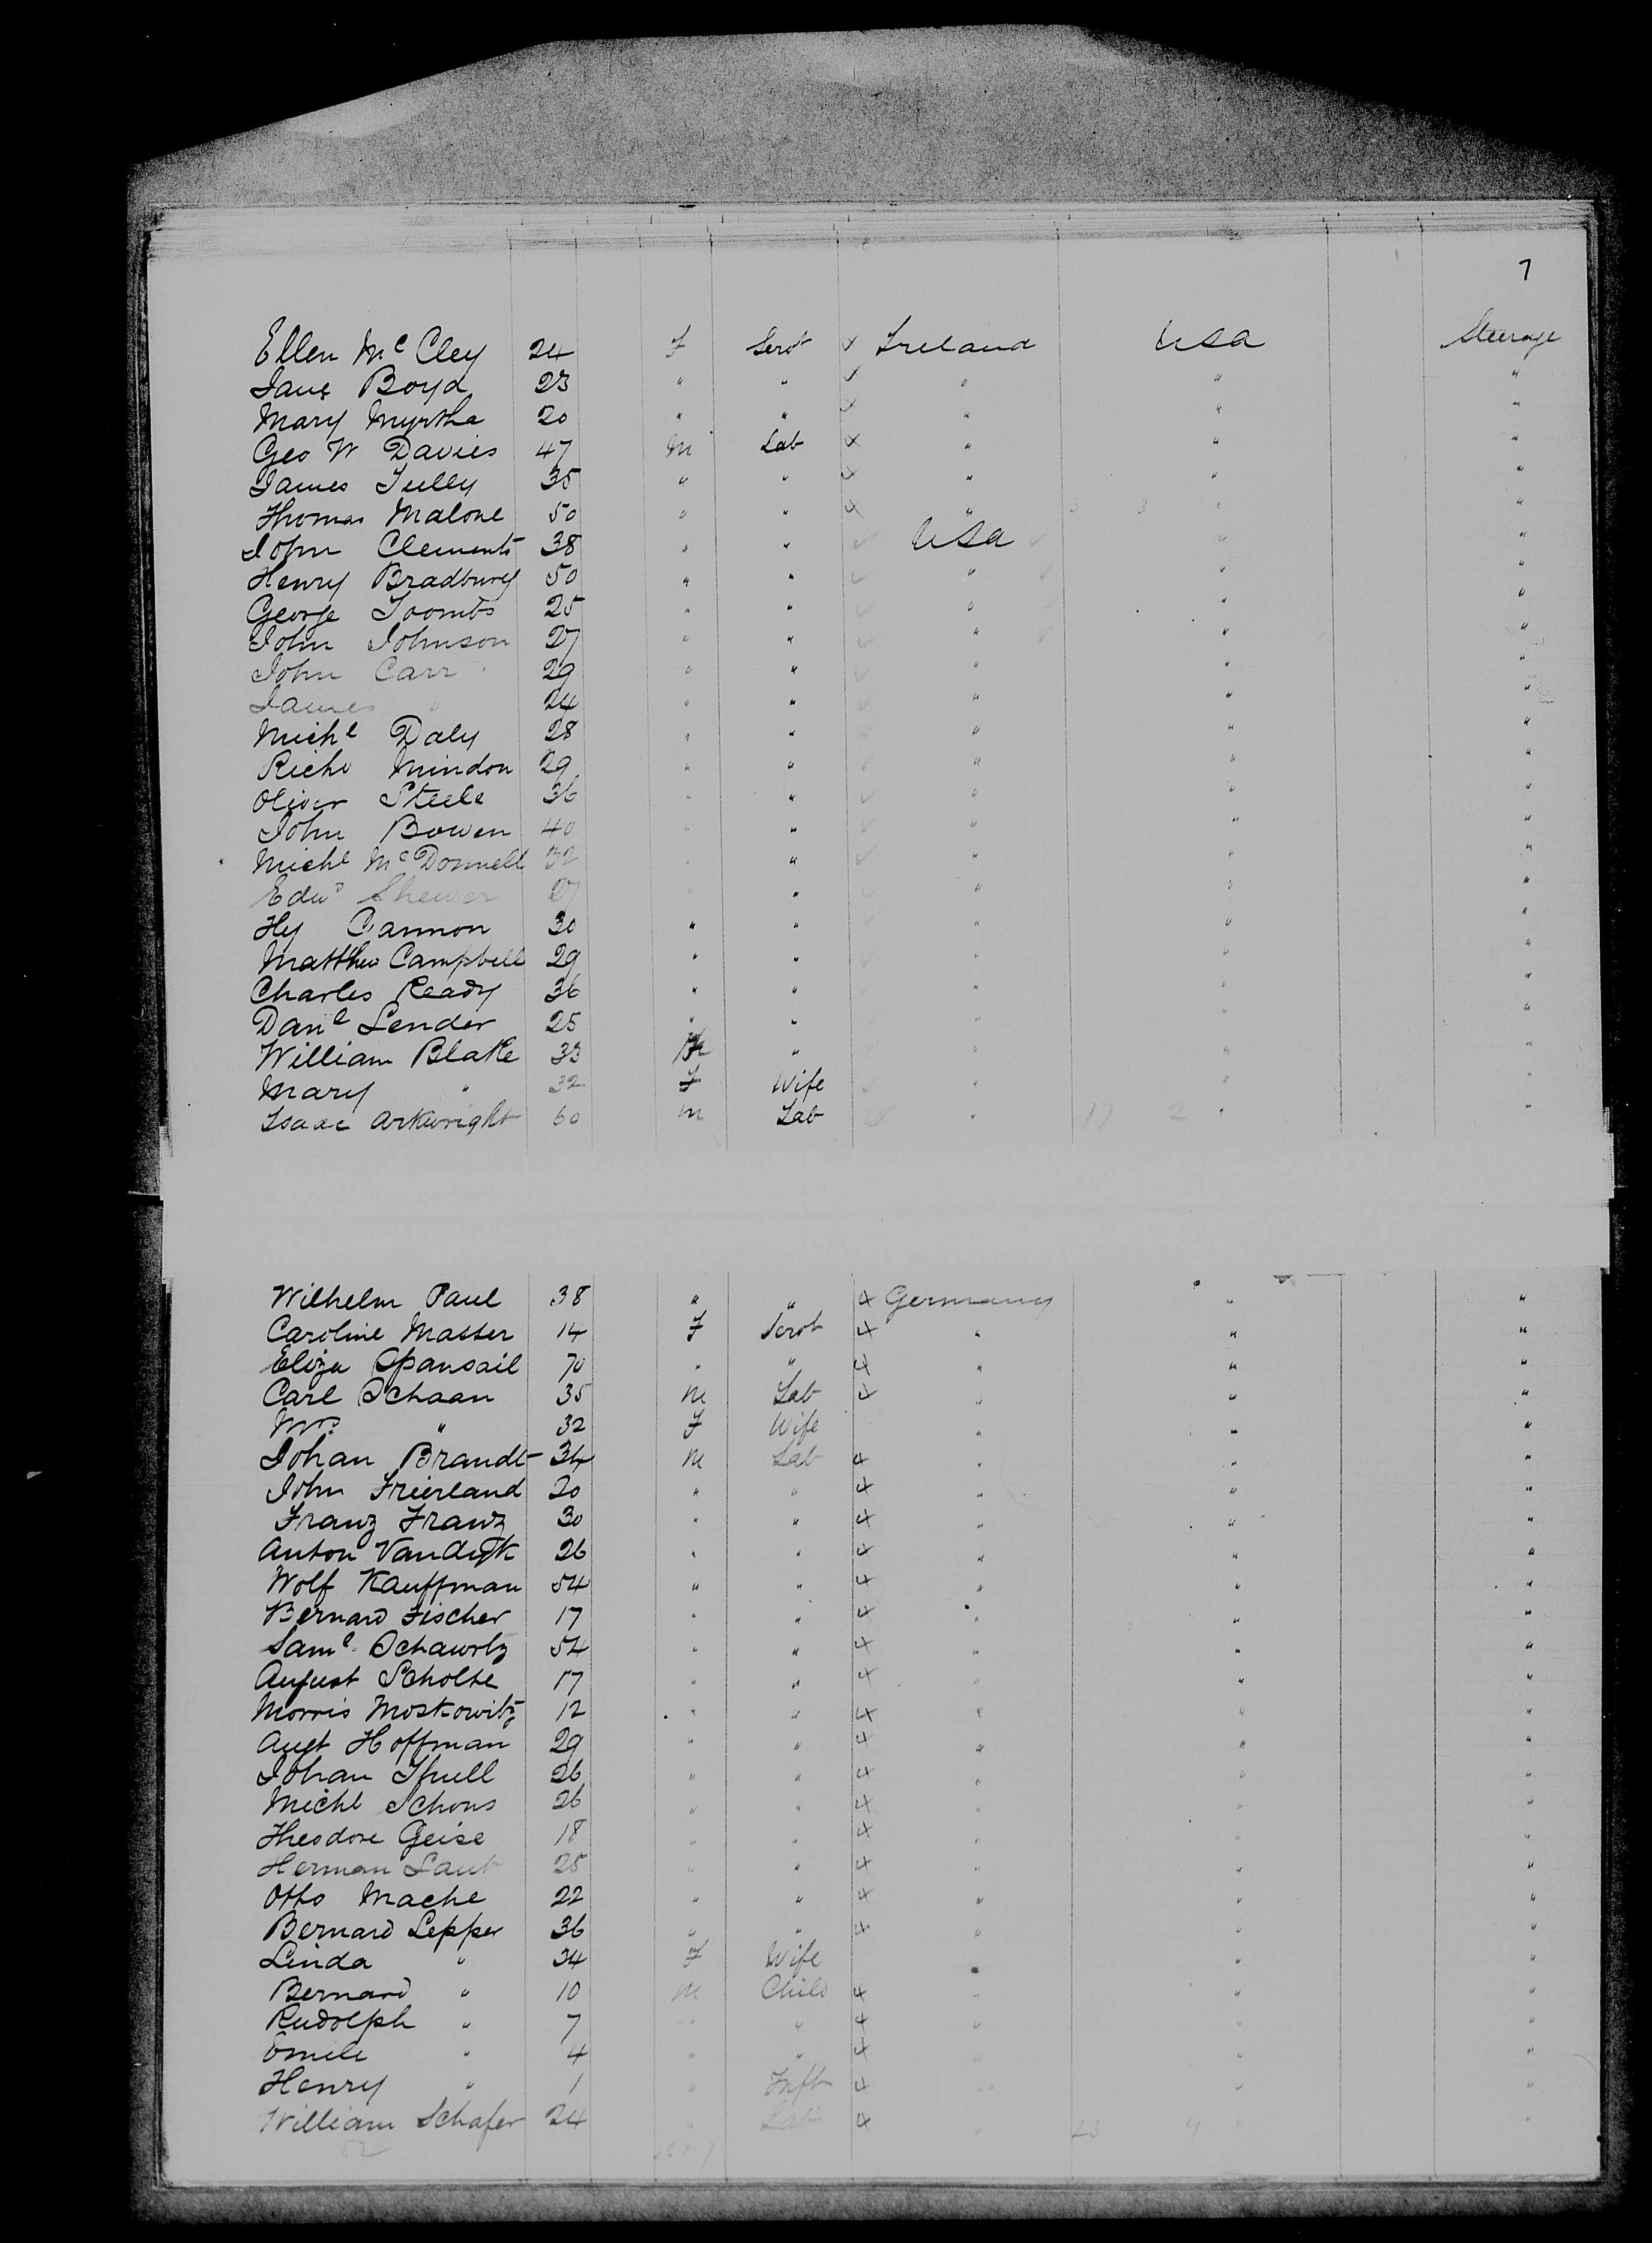 7
Ellen McCley 24 F Servt x Ireland USA Steerage
Jane Boyd 23 " " x " " "
Mary Myrtha 20 " " x " " "
Geo W Davies 47 M Lab x " " "
James Tully 35 " " x " " "
Thomas Malone 50 " " x " 3 3 " "
John Clements 38 " " ✓ USA ✓ " "
Henry Bradbury 50 " " ✓ " " "
George Toombs 25 " " ✓ " " "
John Johnson 27 " " ✓ " " "
John Carr 29 " " ✓ " " "
James " 24 " " ✓ " " "
Michl Daly 28 " " " " "
Richd Mindon 29 " " " " "
Oliver Steele 36 " " ✓ " " "
John Bowen 40 " " ✓ " " "
Michl McDonnell 32 " " ✓ " " "
Edwd Shewer 27 " " ✓ " " "
Hy Cannon 30 " " " " "
Matthew Campbell 29 " " " " "
Charles Ready 36 " " " " "
Danl Lender 25 " " " " "
William Blake 33 M " " " "
Mary " 32 F Wife " " "
Isaac Arkwright 60 M Lab " 17 2 " "
Wilhelm Paul 38 " " x Germany " "
Caroline Masser 14 F Servt x " " "
Eliza Spansail 70 " " x " " "
Carl Schaan 35 M Lab x " " "
Mrs " 32 F Wife " " "
Johan Brandt 34 M Lab x " " "
John Frierland 20 " " x " " "
Franz Franz 30 " " x " " "
Anton Vandyk 26 " " x " " "
Wolf Kauffman 54 " " x " " "
Bernard Fischer 17 " " x " " "
Saml Schawrtz 54 " " x " " "
August Scholte 17 " " x " " "
Morris Moskowitz 12 " " x " " "
Augt Hoffman 29 " " x " " "
Johan 26 " " x " " "
Michl Schons 26 " " x " " "
Theodore Geise 18 " " x " " "
Herman Laut 25 " " x " " "
Otto Mache 22 " " x " " "
Bernard Lepper 36 " " x " " "
Linda " 34 F Wife " " "
Bernard " 10 M Child x " " "
Rudolph " 7 " " x " " "
Emile " 4 " " x " " "
Henry " 1 " Inft x " " "
William Schafer 24 " Lab x " 23 4 " "
52